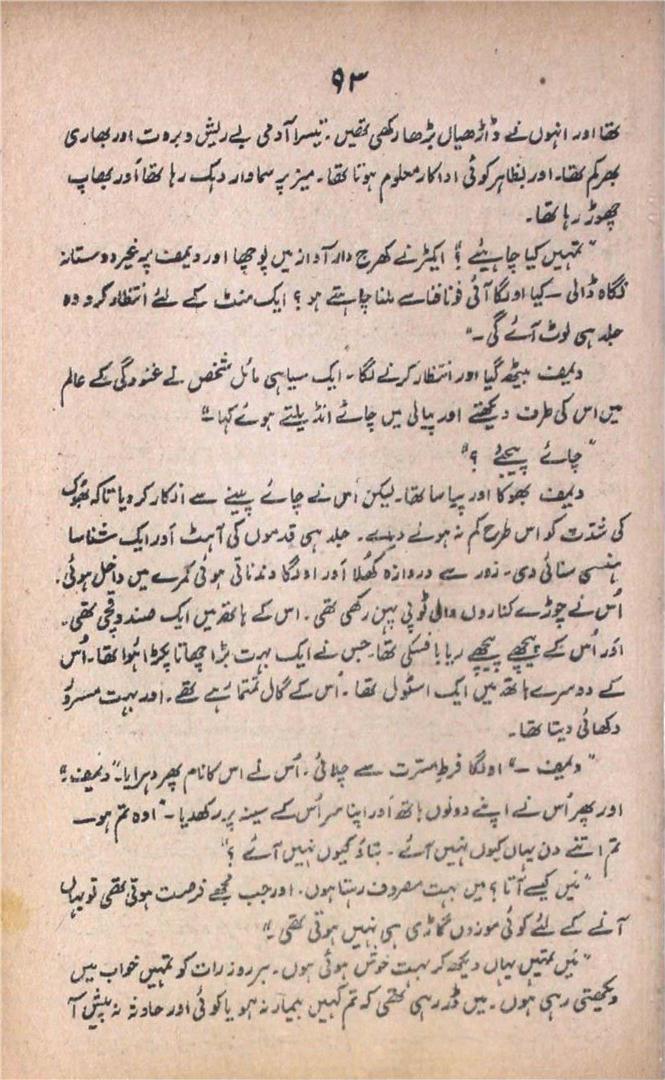 ۹۳
تھا اور انہوں نے ڈاڑھیاں بڑھا رکھی تھیں۔ تیسرا آدمی بے ریش و بروت اور بھاری
بھر کم تھا۔ اور بظاہر کوئی اداکار معلوم ہوتا تھا۔ میز پر سماوار دہک رہا تھا اَور بھاپ
چھوڑ رہا تھا۔
”تمہیں کیا چاہیئے؟“ ایکٹر نے کھرج دار آواز میں پوچھا اور دیمف پر غیر دوستانہ
نگاہ ڈالی — کیا اولگا آئی فونافنا سے ملنا چاہتے ہو؟ ایک منٹ کے لئے انتظار کرو وہ
جلد ہی لوٹ آئے گی —“
دیمف بیٹھ گیا اور انتظار کرنے لگا۔ ایک سیاہی مائل شخص نے غنودگی کے عالم
میں اس کی طرف دیکھتے اور پیالی میں چائے انڈیلتے ہوئے کہا —“
”چائے پیجئے؟“
دیمف بھوکا اور پیاسا تھا۔ لیکن اُس نے چائے پینے سے انکار کر دیا تاکہ بھوک
کی شدّت کو اس طرح کم نہ ہونے دے۔ جلد ہی قدموں کی آہٹ اَور ایک شناسا
ہنسی سنائی دی۔ زور سے دروازہ کھُلا اَور اولگا دندناتی ہوئی کمرے میں داخل ہوئی۔
اُس نے چوڑے کناروں والی ٹوپی پہن رکھی تھی۔ اس کے ہاتھ میں ایک صندوقچی تھی۔
اَور اُس کے پیچھے پیچھے ریابافسکی تھا۔ جس نے ایک بہت بڑا چھاتا پکڑا ہُوا تھا۔ اُس
کے دوسرے ہاتھ میں ایک اسٹول تھا۔ اُس کے گال تمتما رہے تھے۔ اَور بہت مسرور
دکھائی دیتا تھا۔
”دیمف —“ اولگا فرطِ مسّرت سے چلائی۔ اُس نے اس کا نام پھر دہرایا۔ ”دیمف۔“
اور پھر اُس نے اپنے دونوں ہاتھ اَور اپنا سر اُس کے سینہ پر رکھدیا —“ اوہ تم ہو —
تم اتنے دن یہاں کیوں نہیں آئے۔ بتاؤ کیوں نہیں آئے؟“
”مَیں کیسے آتا؟ میں بہت مصروف رہتا ہوں۔ اور جب مجھے فرصت ہوتی تھی تو یہاں
آنے کے لئے کوئی موزوں گاڑی ہی نہیں ہوتی تھی۔“
”مَیں تمہیں یہاں دیکھ کر بہت خوش ہوئی ہوں۔ ہر روز رات کو تمہیں خواب میں
دیکھتی رہی ہوں۔ میں ڈر رہی تھی کہ تم کہیں بیمار نہ ہو یا کوئی اور حادثہ نہ پیش آ